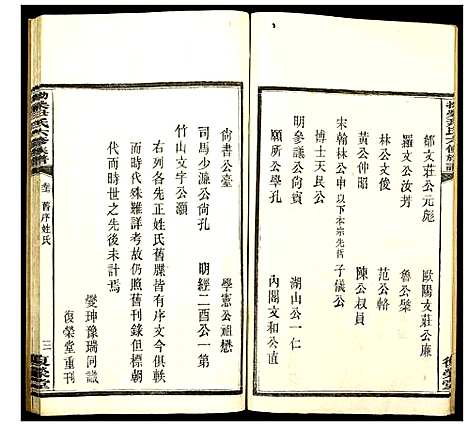 鄒文莊公元彪
歐陽文莊公廉
羅文公汝芳
魯公榮
林公文俊
范公輅
黃公仲昭
陳公叔員
宋翰林公申以下本宗先哲
子儀公
博士天民公
明參議公尙賓
湖山公一仁
願所公學孔
內閣文和公直
復榮堂
尙書公臺
學憲公祖懋
司馬少濂公尙孔
明經二酉公一第
竹山文字公灝
右列各先正姓氏舊牒皆有序文今俱軼
而時代殊難詳考故仍照舊刊錄但標朝
代而時世之先後未計焉
燮珅豫瑞同識
復榮堂重刊
首序姓氏
三
復榮堂